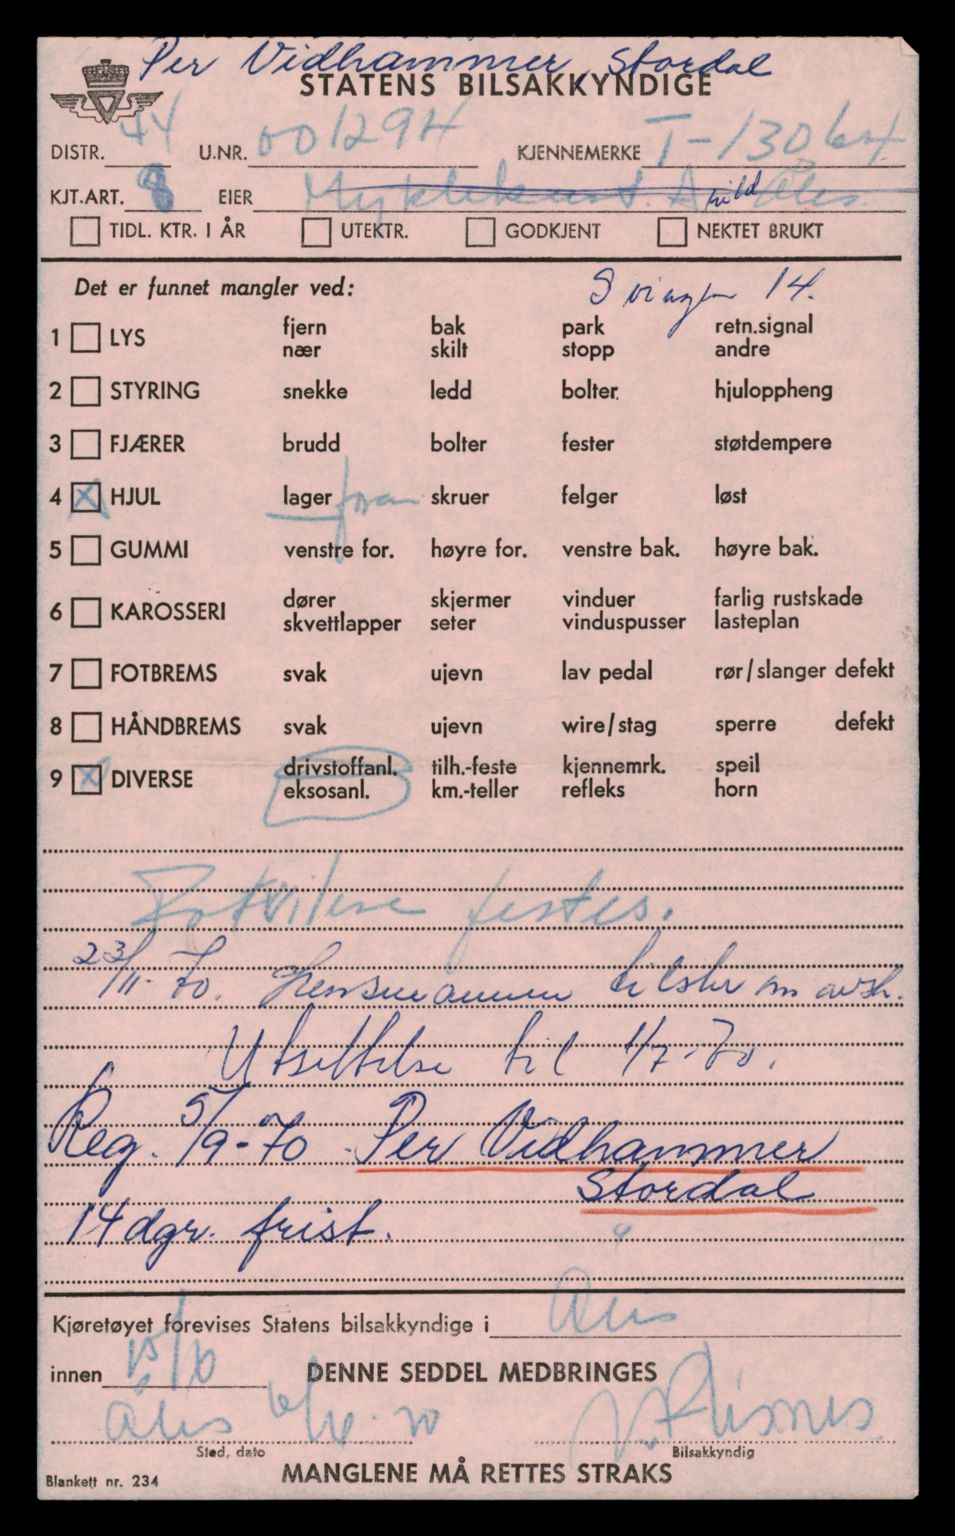 Per Vidhammer, Stordal
STATENS BILSAKKYNDIGE
DISTR. 44 U.NR. 001294 KJENNEMERKE T-13064
KJT.ART. 8 EIER Myklebust Arild Åles
TIDL. KTR. I ÅR UTEKTR. GODKJENT NEKTET BRUKT
Det er funnet mangler ved: Svingen 14.
1 LYS fjern nær bak skilt park stopp retn.signal andre
2 STYRING snekke ledd bolter. hjuloppheng
3 FJÆRER brudd bolter fester støtdempere
4 X HJUL lager foran skruer felger løst
5 GUMMI venstre for. høyre for. venstre bak. høyre bak.
6 KAROSSERI dører skvettlapper skjermer seter vinduer vinduspusser farlig rustskade lasteplan
7 FOTBREMS svak ujevn lav pedal rør/slanger defekt
8 HÅNDBREMS svak ujevn wire/stag sperre defekt
9 X DIVERSE drivstoffanl. eksosanl. tilh.-feste km.-teller kjennemrk. refleks speil horn
Fotkvilere festes.
23/11-70. Hensmannen tilskr om avsk.
Utsettelse til 1/7-70.
Reg. 5/9-70 Per Vidhammer
Stordal
14 dgr. frist.
Kjøretøyet forevises Statens bilsakkyndige i Åles
innen 15/6 DENNE SEDDEL MEDBRINGES
Åles
Sted, dato Bilsakkyndig
Blankett nr. 234 MANGLENE MÅ RETTES STRAKS